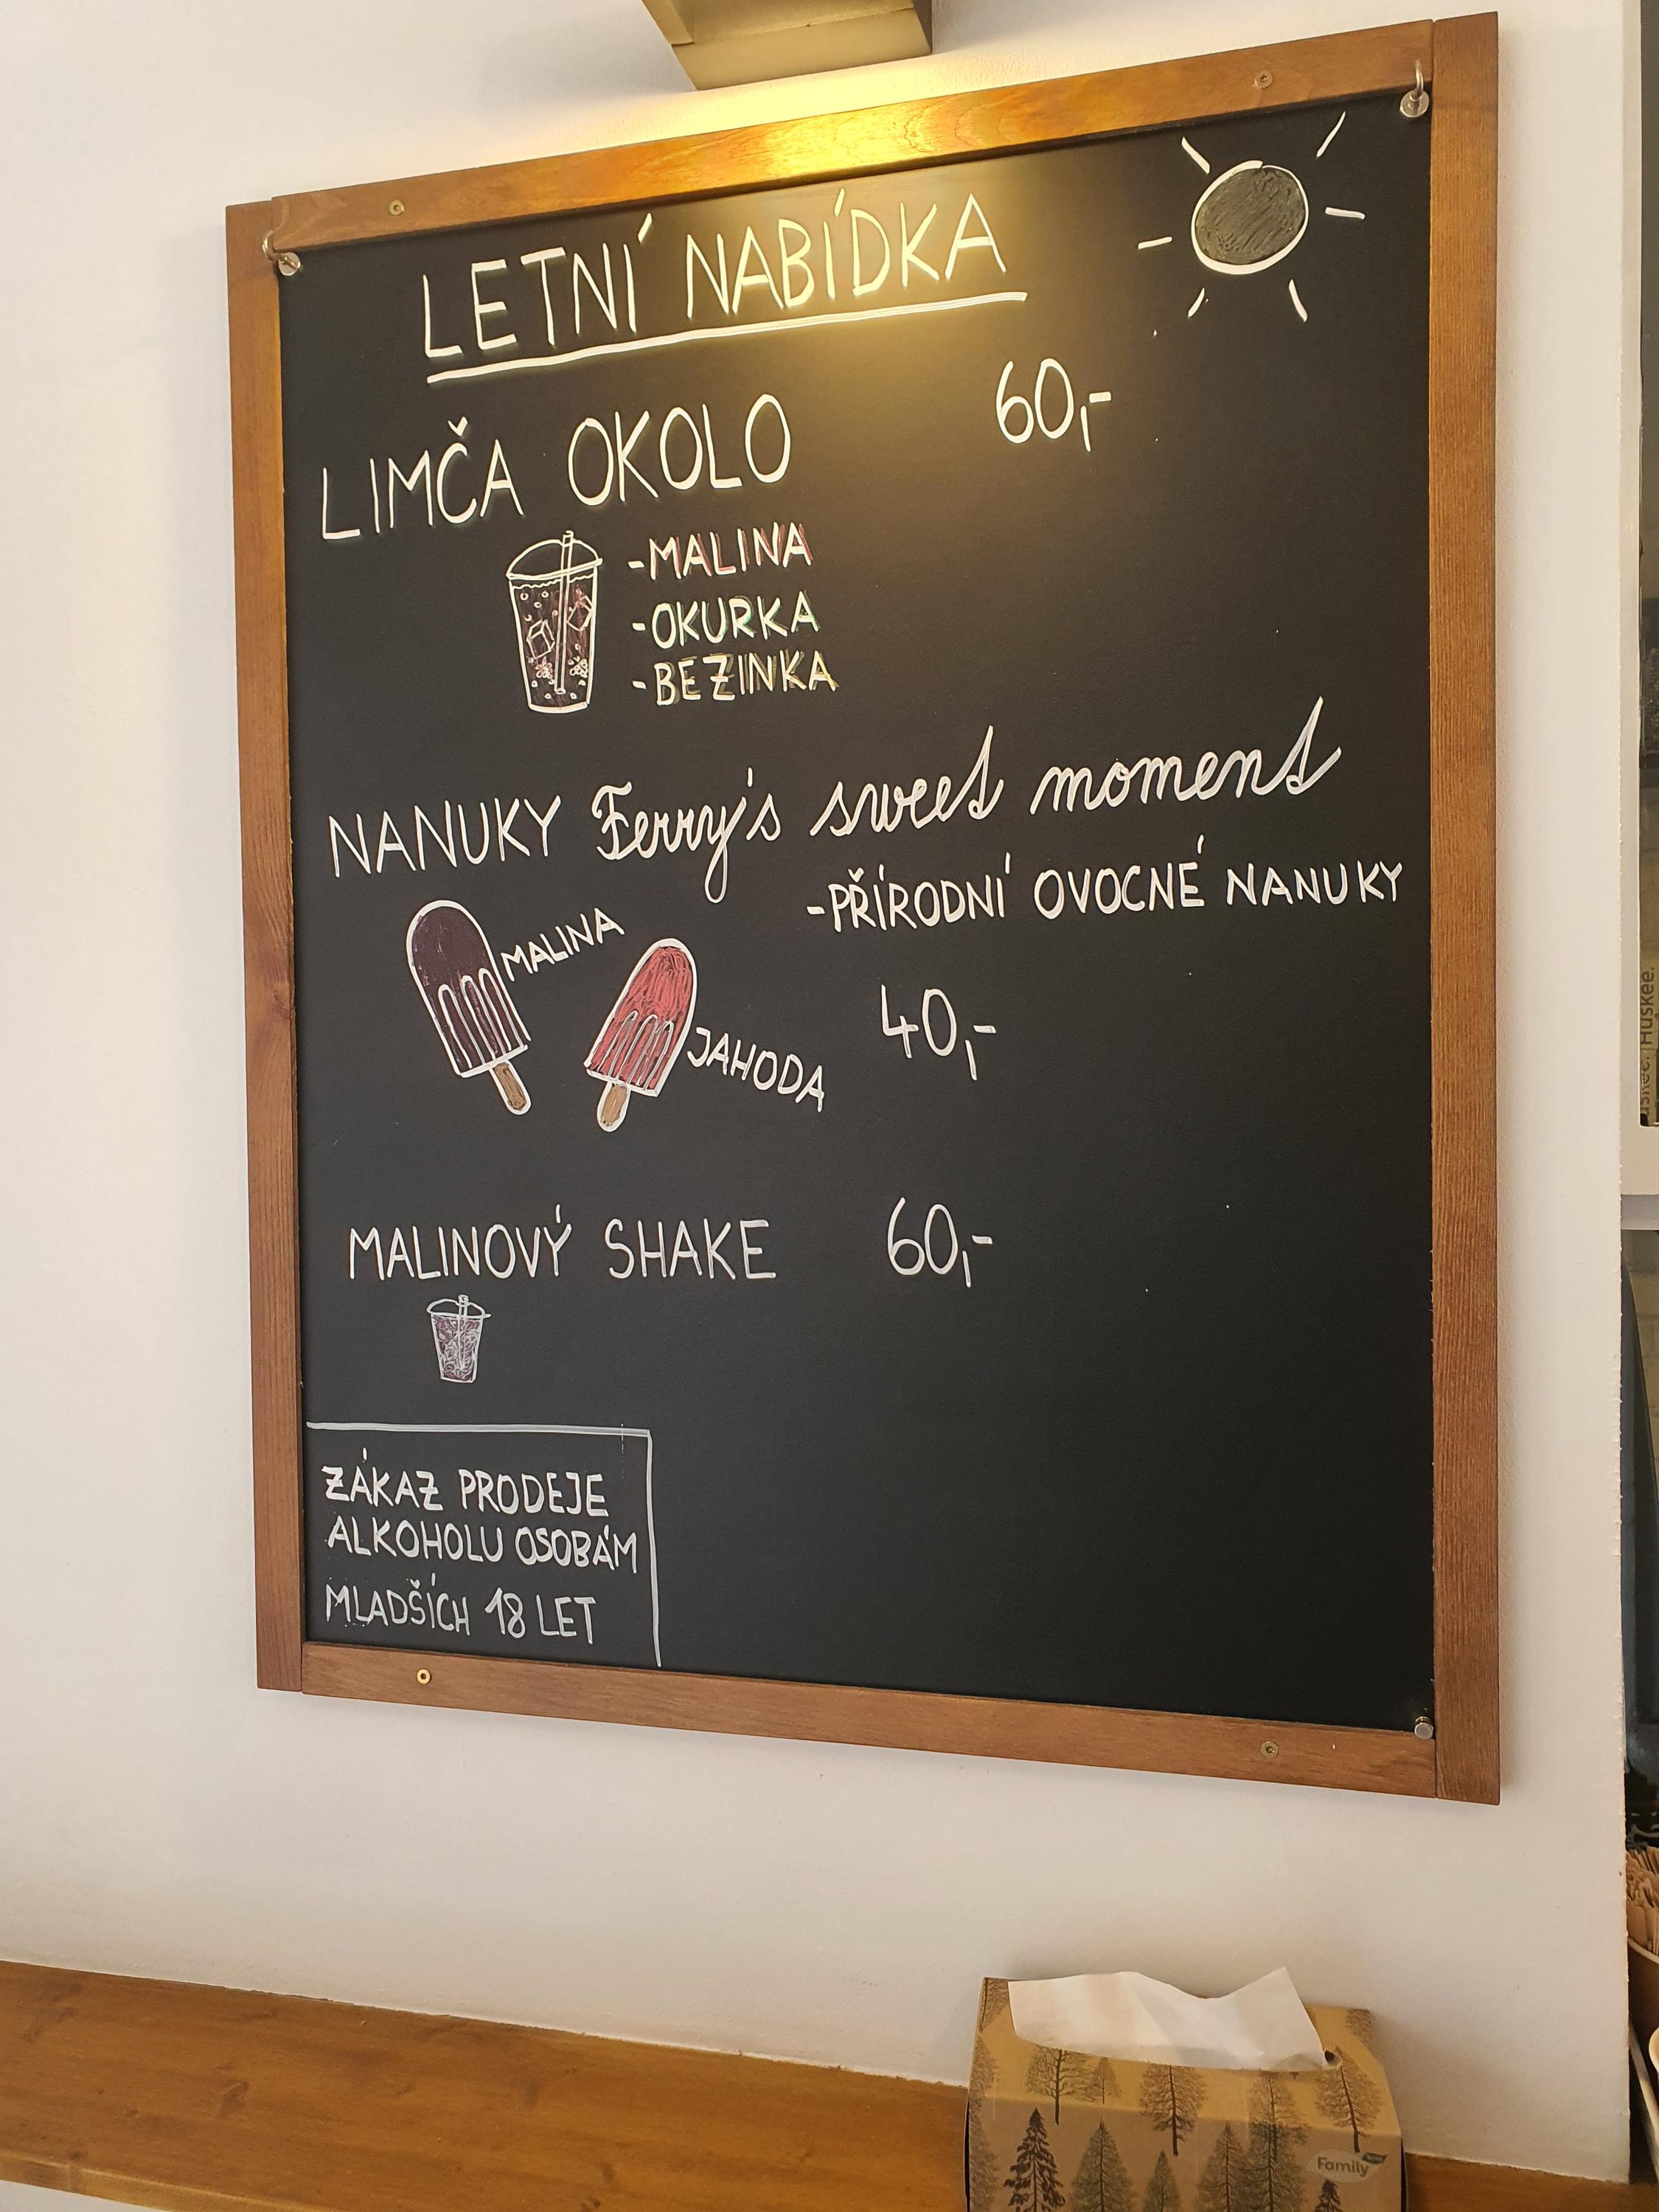 LETNÍ NABÍDKA
LIMČA OKOLO 60,-
-MALINA
-OKURKA
-BEZINKA
NANUKY Ferry's sweet moment
-PŘÍRODNÍ OVOCNÉ NANUKY
MALINA
JAHODA
40,-
MALINOVÝ SHAKE 60,-
ZÁKAZ PRODEJE
ALKOHOLU OSOBÁM
MLADŠÍCH 18 LET
Huskee.
Family